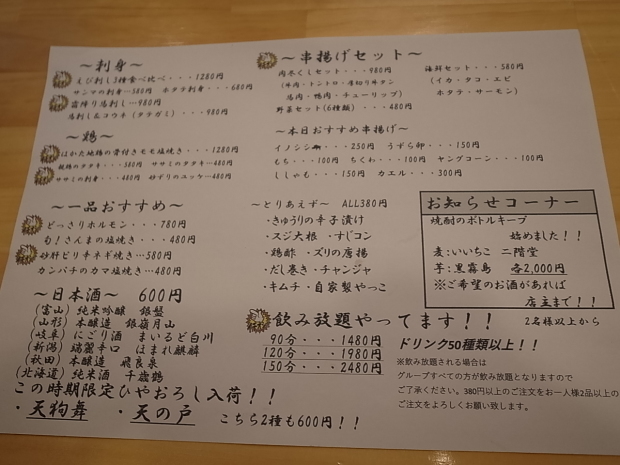 ～刺身～
えび刺し3種食べ比べ・・・1280円
サンマの刺身…380円 ホタテ刺身・・・680円
霜降り馬刺し…980円
馬刺し&コウネ(タテガミ)・・・980円
～鶏～
はかた地鶏の骨付きモモ塩焼き・・・1280円
親鶏のタタキ・・・380円 ササミのタタキ…480円
ササミの刺身・・・480円 砂ずりのユッケ…480円
～一品おすすめ～
どっさりホルモン・・・780円
む!さんまの塩焼き・・・480円
砂肝ピリ辛ネギ焼き…580円
カンパチのカマ塩焼き…480円
～日本酒～ 600円
(富山) 純米吟醸 銀盤
(山形) 本醸造 銀嶺月山
(岐阜) にごり酒 まいるど白川
(新潟) 端麗辛口 ほまれ麒麟
(秋田) 本醸造 飛良泉
(北海道) 純米酒 千歳鶴
この時期限定ひやおろし入荷!!
・天狗舞 ・天の戸 こちら2種も600円!!
～串揚げセット～
肉尽くしセット・・・980円
(牛肉・トントロ・厚切り牛タン
馬肉・鴨肉・チューリップ)
野菜セット(6種類)・・・480円
海鮮セット・・・580円
(イカ・タコ・エビ
ホタテ・サーモン)
～本日おすすめ串揚げ～
イノシシ・・・250円 うずら卵・・・150円
もち・・・100円 ちくわ・・・100円 ヤングコーン・・・100円
ししゃも・・・150円 カエル・・・300円
～とりあえず～ ALL380円
・きゅうりの辛子漬け
・スジ大根 ・すじコン
・鶏酢 ・ズリの唐揚
・だし巻き ・チャンジャ
・キムチ ・自家製やっこ
お知らせコーナー
焼酎のボトルキープ
始めました!!
麦:いいちこ 二階堂
芋:黒霧島 各2,000円
※ご希望のお酒があれば
店主まで!!
飲み放題やってます!! 2名様以上から
90分・・・1480円
120分・・・1980円
150分・・・2480円
ドリンク50種類以上!!
※飲み放題される場合は
グループすべての方が飲み放題となりますので
ご了承ください。380円以上のご注文をお一人様2品以上の
ご注文をよろしくお願い致します。